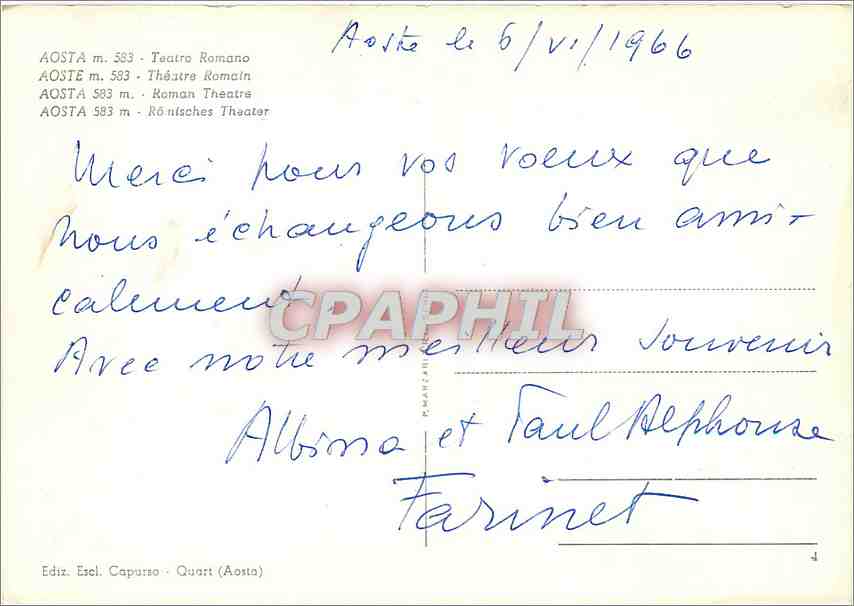 Aoste le 6/VI/1966
AOSTA m. 583 - Teatro Romano
AOSTE m. 583 - Théatre Romain
AOSTA 583 m. - Roman Theatre
AOSTA 583 m - Rönisches Theater
Merci pour vos voeux que
nous échangeons bien ami-
calement.
Avec notre meilleur souvenir
Albina et Paul Alphonse
Farinet
CPAPHIL
P. MARZARI
Ediz. Escl. Capurso - Quart (Aosta)
4